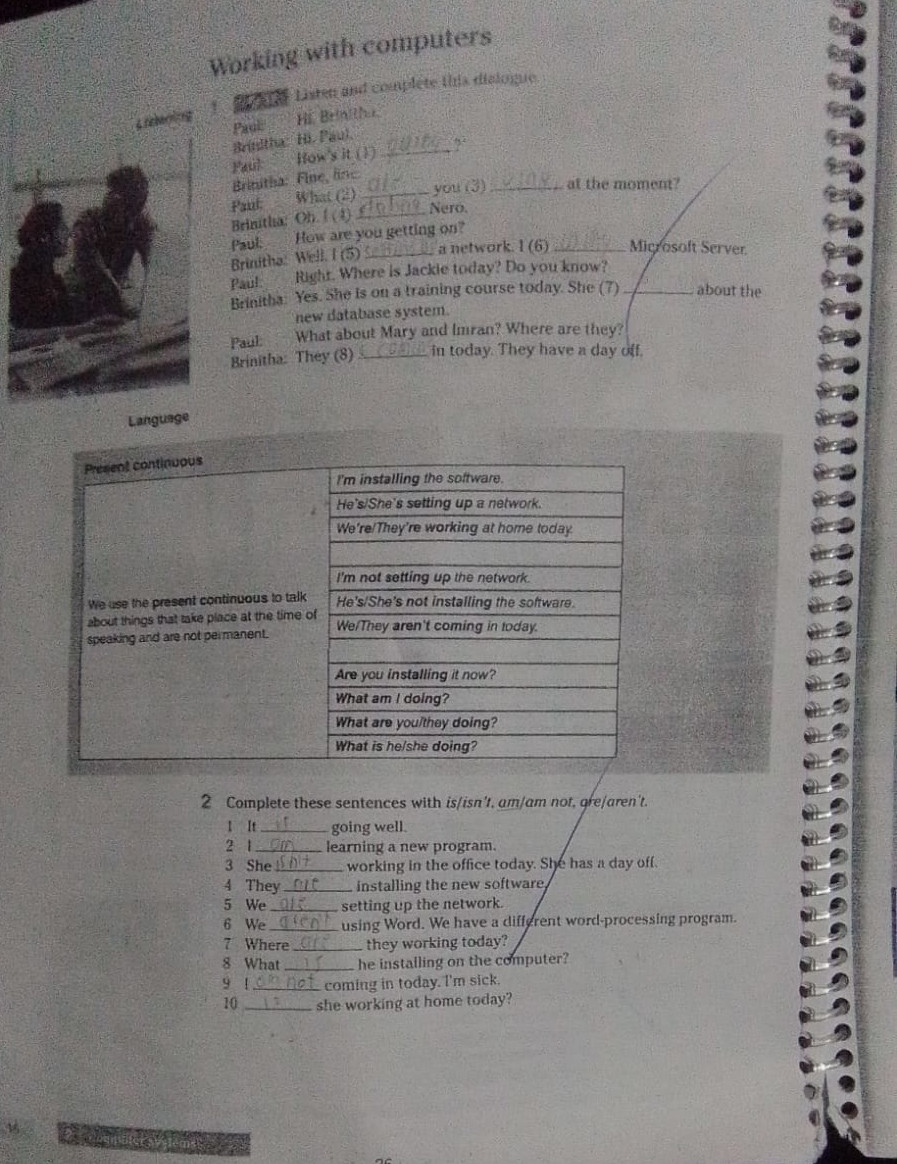 Working with computers
Listening
1 Listen and complete this dialogue.
Paul: Hi, Brinitha.
Brinitha: Hi, Paul.
Paul: How's it (1) going ?
Brinitha: Fine, fine.
Paul: What (2) are you (3) at the moment?
Brinitha: Oh, I (4) Nero.
Paul: How are you getting on?
Brinitha: Well, I (5) a network. I (6) Microsoft Server.
Paul: Right. Where is Jackie today? Do you know?
Brinitha: Yes. She is on a training course today. She (7) about the
new database system.
Paul: What about Mary and Imran? Where are they?
Brinitha: They (8) in today. They have a day off.
Language
Present continuous
We use the present continuous to talk
about things that take place at the time of
speaking and are not permanent.
I'm installing the software.
He's/She's setting up a network.
We're/They're working at home today.
I'm not setting up the network.
He's/She's not installing the software.
We/They aren't coming in today.
Are you installing it now?
What am I doing?
What are you/they doing?
What is he/she doing?
2 Complete these sentences with is/isn't, am/am not, are/aren't.
1 It is going well.
2 I am learning a new program.
3 She isn't working in the office today. She has a day off.
4 They are installing the new software.
5 We are setting up the network.
6 We arent using Word. We have a different word-processing program.
7 Where are they working today?
8 What is he installing on the computer?
9 I am not coming in today. I'm sick.
10 is she working at home today?
16
Computer systems
26